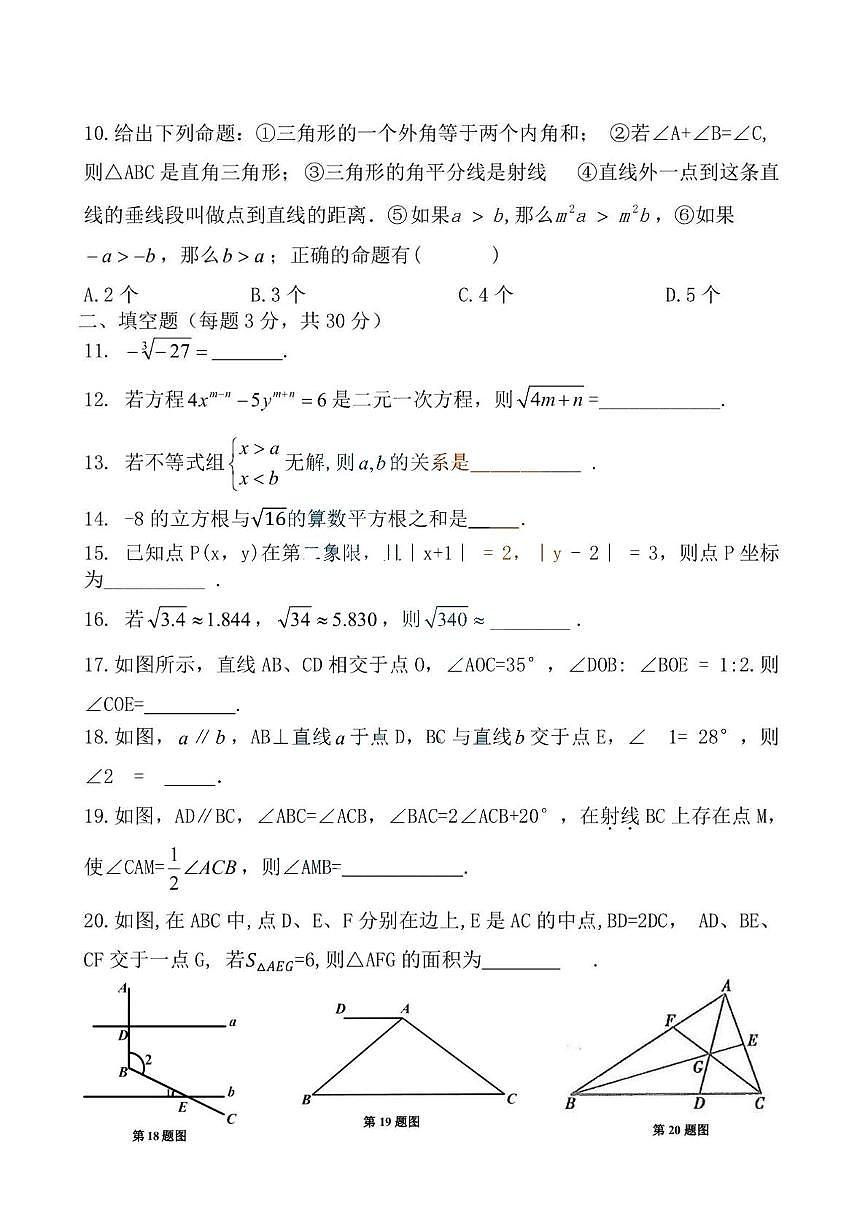 10.给出下列命题：①三角形的一个外角等于两个内角和； ②若∠A+∠B=∠C,
则△ABC 是直角三角形；③三角形的角平分线是射线 ④直线外一点到这条直
线的垂线段叫做点到直线的距离．⑤如果a > b,那么m²a > m²b，⑥如果
－a＞-b，那么b＞a；正确的命题有( )
A.2 个 B.3 个 C.4 个 D.5 个
二、填空题（每题 3 分，共 30 分）
11. -∛-27 = ______.
12. 若方程 4x^{m-n} -5y^{m+n} = 6 是二元一次方程，则 √4m+n =____________.
13. 若不等式组 { x>a x<b 无解,则a,b的关系是___________ .
14. -8 的立方根与√16的算数平方根之和是_____.
15. 已知点 P(x，y)在第二象限，且｜x+1｜ = 2，｜y - 2｜ = 3，则点 P 坐标
为__________ .
16. 若√3.4 ≈1.844，√34 ≈5.830，则√340 ≈ ________ .
17.如图所示，直线 AB、CD 相交于点 O，∠AOC=35°，∠DOB: ∠BOE = 1:2.则
∠COE=_________.
18.如图，a∥b，AB⊥直线a于点 D，BC 与直线b交于点 E，∠ 1= 28°，则
∠2 = _____.
19.如图，AD∥BC，∠ABC=∠ACB，∠BAC=2∠ACB+20°，在射线 BC 上存在点 M，
使∠CAM=1/2∠ACB，则∠AMB=____________.
20.如图,在 ABC 中,点 D、E、F 分别在边上,E 是 AC 的中点,BD=2DC， AD、BE、
CF 交于一点 G, 若S△AEG=6,则△AFG 的面积为________ .
A
D
a
B
2
1
b
E
C
第18题图
D
A
B
C
第 19 题图
A
F
E
G
B
D
C
第 20 题图